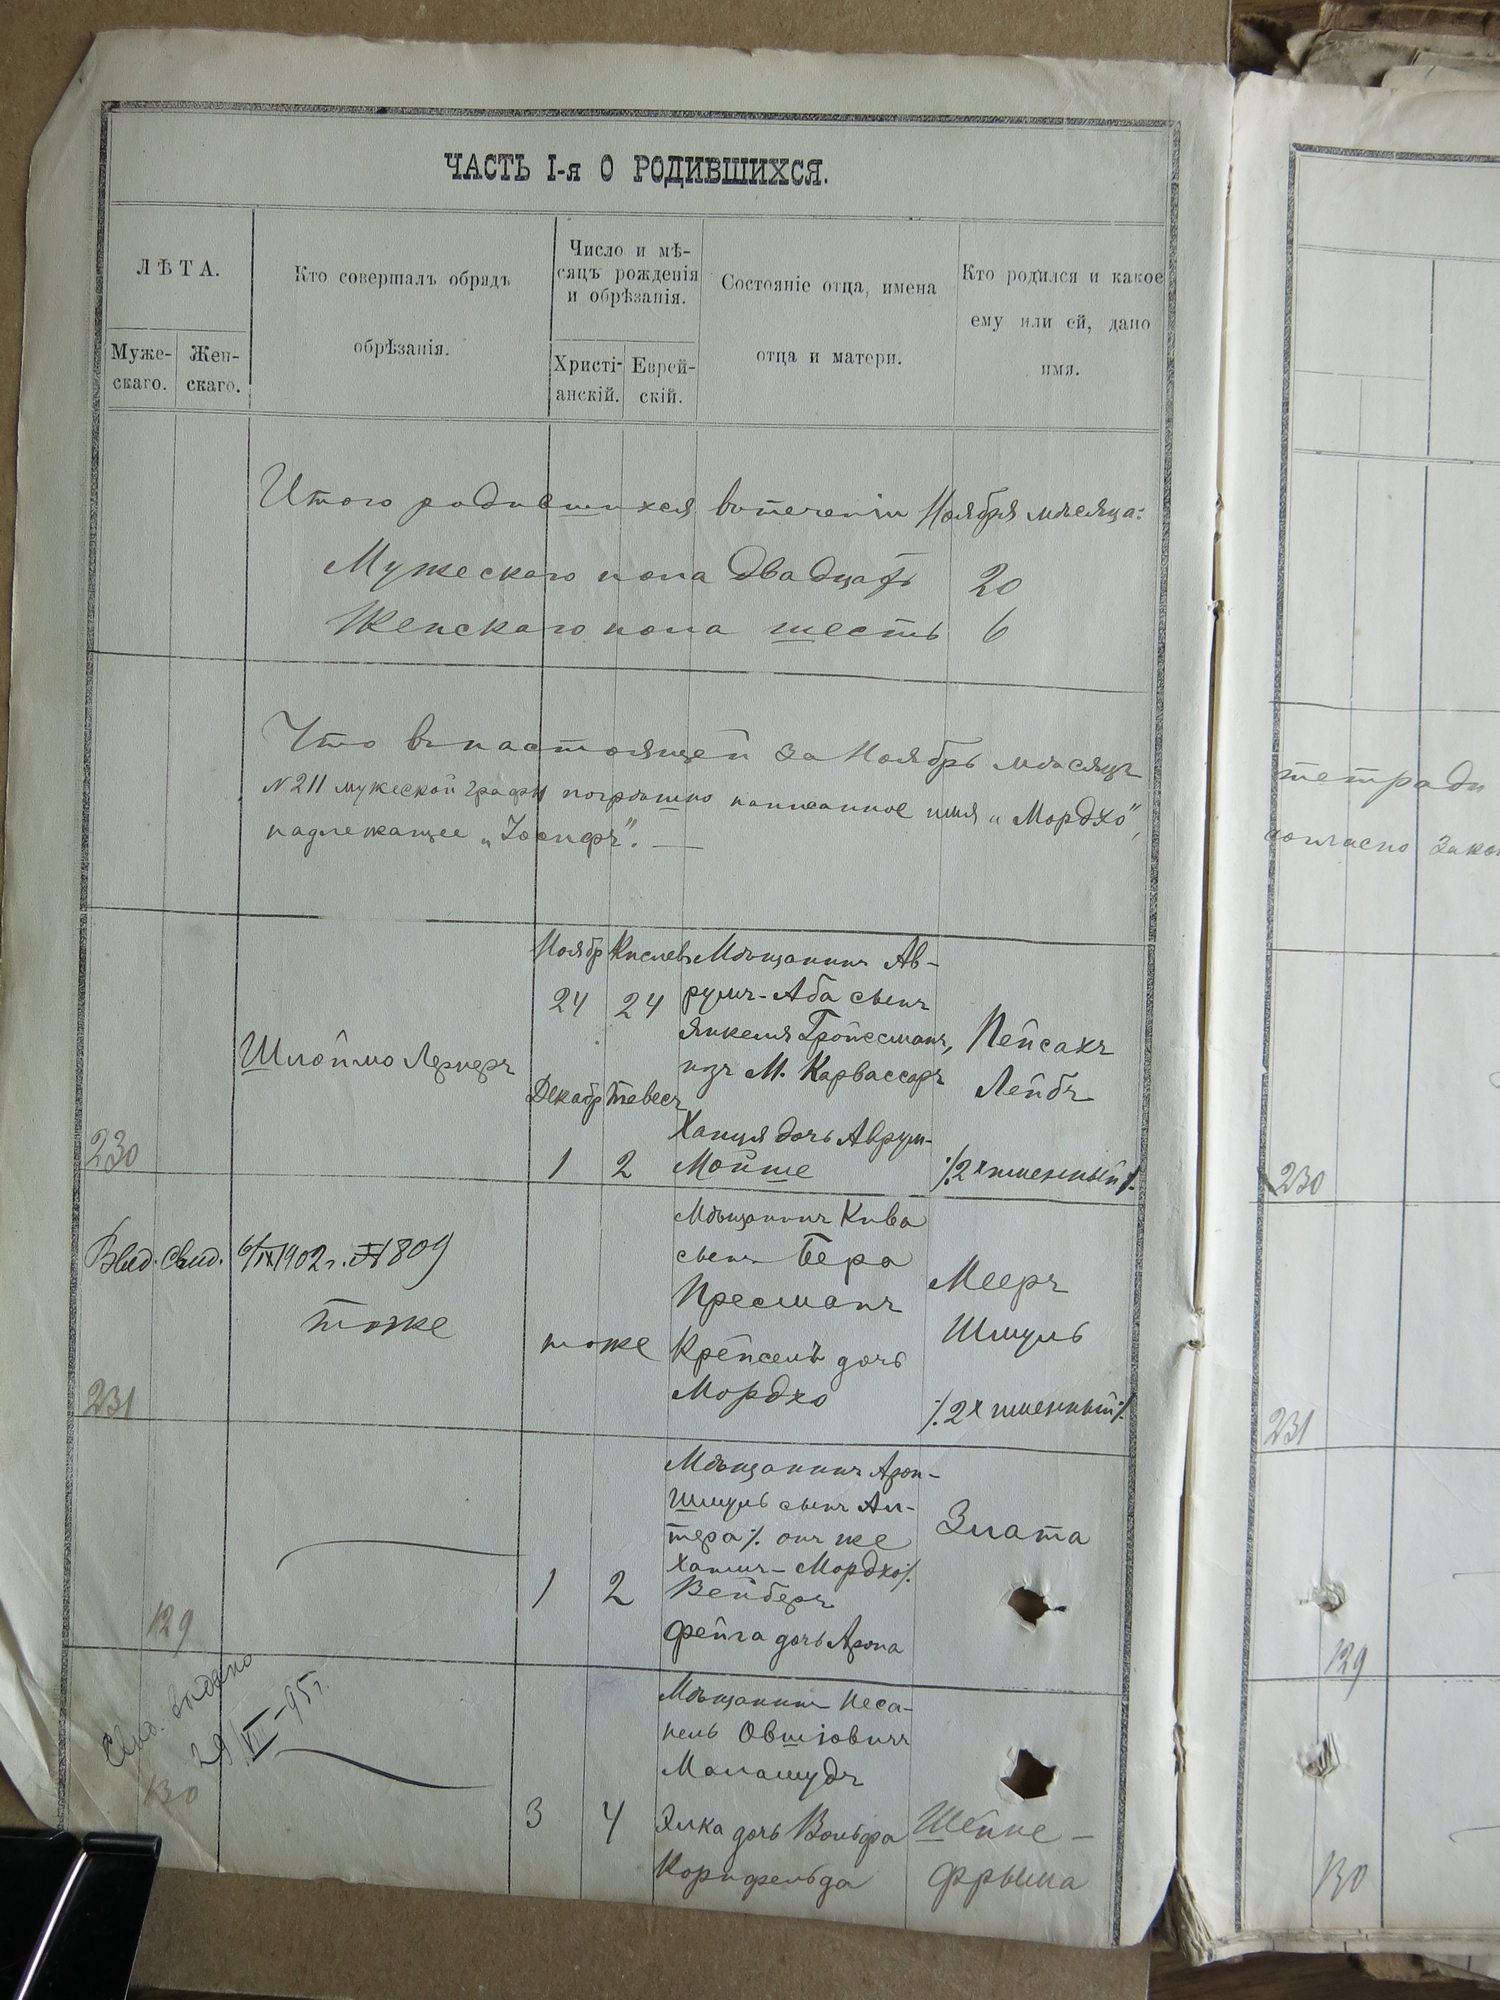 ЧАСТЬ I-я О РОДИВШИХСЯ.
ЛѢТА.
Муже-
скаго.
Жен-
скаго.
Кто совершалъ обрядъ
обрѣзанія.
Число и мѣ-
сяцъ рожденія
и обрѣзанія.
Христі-
анскій.
Еврей-
скій.
Состояніе отца, имена
отца и матери.
Кто родился и какое
ему или ей, дано
имя.
Итого родившихся втеченіи Ноября мѣсяца:
Мужескаго пола двадцать 20
Женскаго пола шесть 6
Что въ настоящей за Ноябрь мѣсяцъ
№ 211 мужеской графы погрѣшно написанное имя „Мордхо",
надлежащее „Іосифъ".
230
Шлоймо Лернеръ
Ноябр
24
Декабр
1
Кислевъ
24
Тевесъ
2
Мѣщанинъ Ав-
румъ-Аба сынъ
Янкеля Гройсманъ,
изъ М. Карвассаръ
Ханця дочь Аврум-
Мойше
Пейсахъ
Лейбъ
/.2х именный/.
Выд. Свид. 6/IX 1902 г. № 1809
231
тоже
тоже
Мѣщанинъ Кива
сынъ Бера
Пресманъ
Крейселъ дочь
Мордхо
Мееръ
Шмуль
/.2х именный/.
129
1
2
Мѣщанинъ Арон-
Шмуль сынъ Ал-
тера/. онъ же
Хаимъ-Мордхо/.
Вейберъ
Фейга дочь Арона
Злата
Свид. выдано
29/VIII-95 г.
130
3
4
Мѣщанинъ Неса-
нель Овшіовичъ
Маламудъ
Элка дочь Вольфа
Корнфельда
Шейне-
Фрыма
тетради
согласно Закон
230
231
129
130